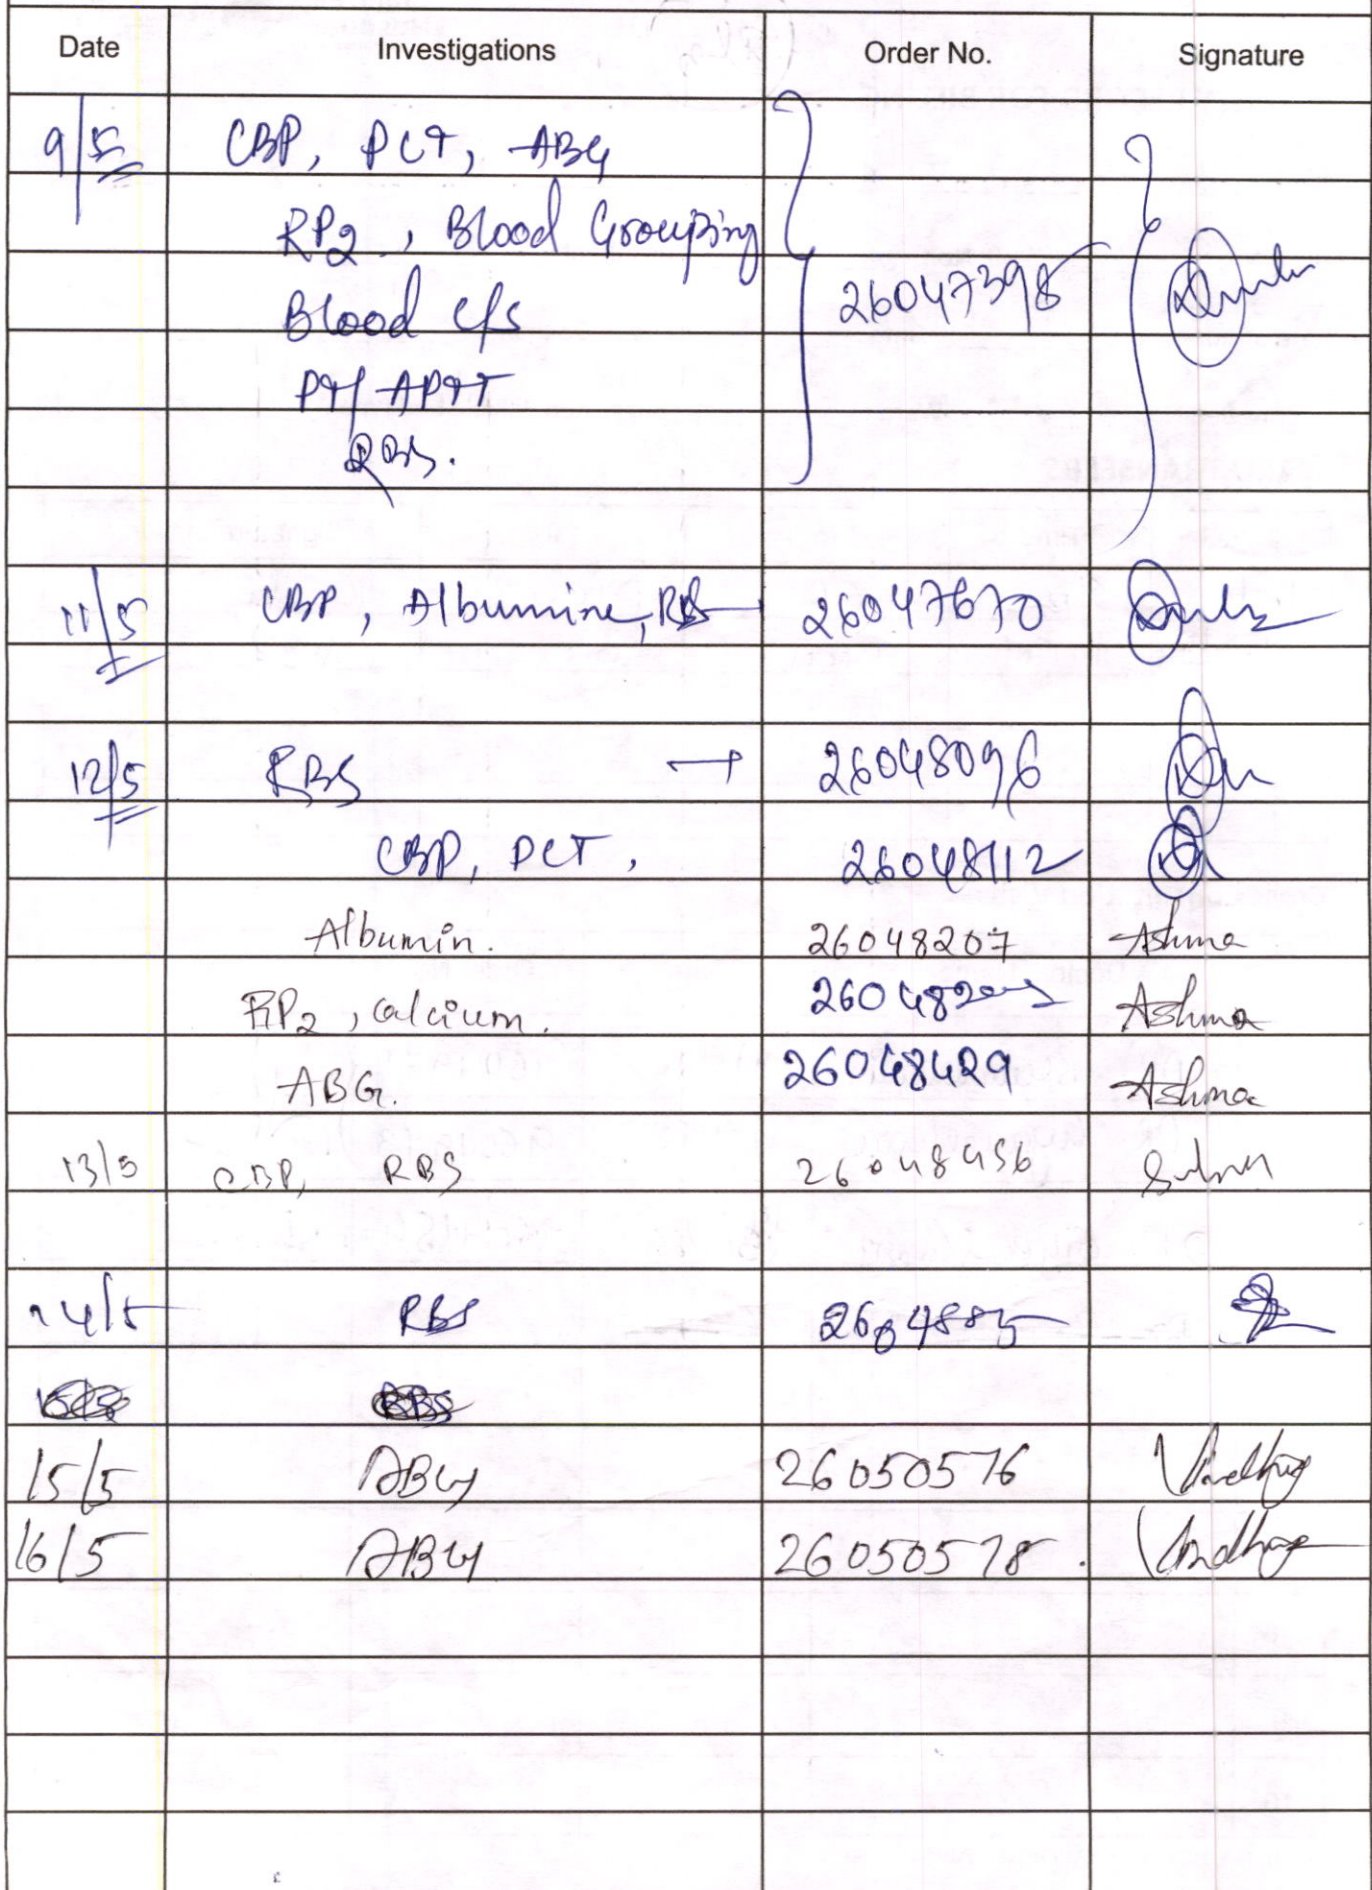 Date Investigations Order No. Signature
9/5 CBP, PCT, ABG
RP2, Blood Grouping
Blood c/s 26047398
PT/APTT
RBS.
11/5 CBP, Albumine, RBS 26047670
12/5 RBS → 26048096
CBP, PCT, 26048112
Albumin. 26048207 Ashma
RP2, calcium. Ashma
ABG. 26048429 Ashma
13/5 CBP, RBS 26048456
14/5 RBS
RBS
15/5 ABG 26050576
16/5 ABG 26050578.